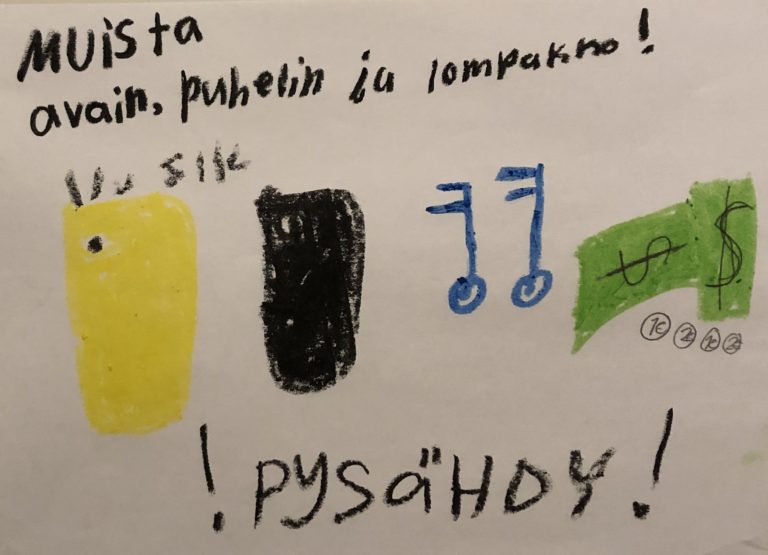 MUISTA
avain, puhelin ja lompakko!
$ $
1€ 2€ 1€ 2€
! PYSäHDY !